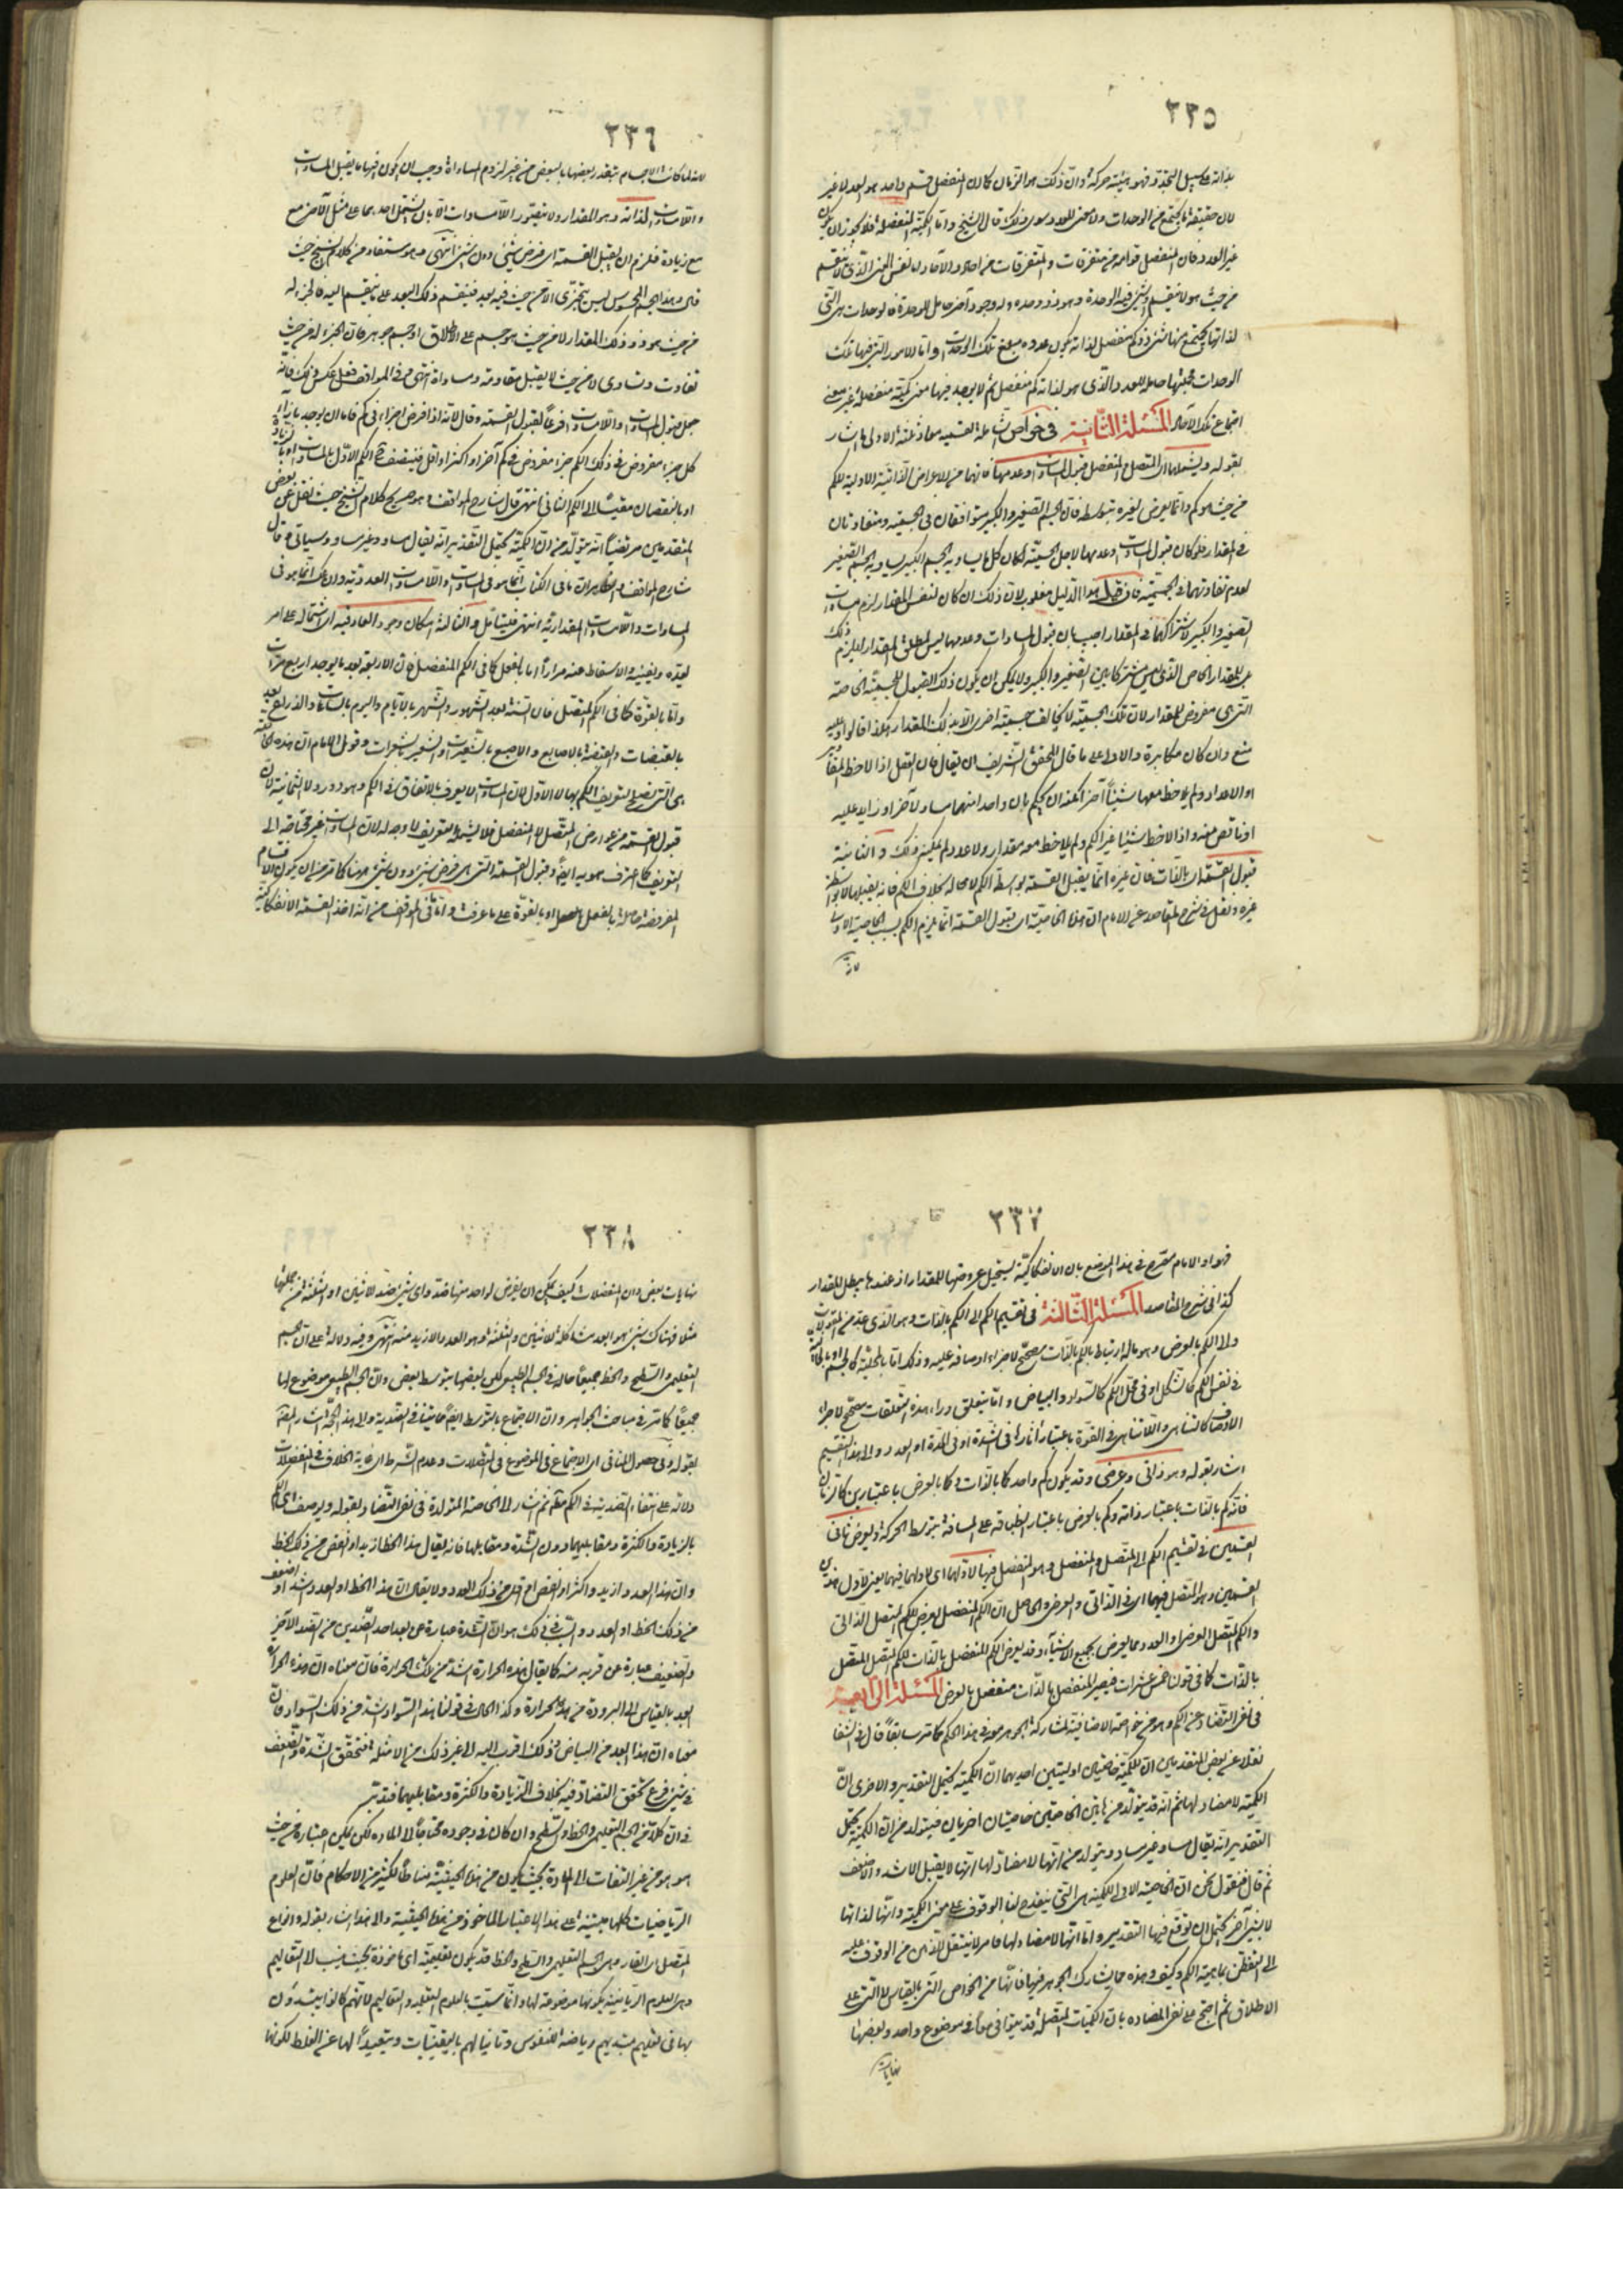 ٣٣٥
بذاته على سبيل التجدد فهو هيئة حركة وان ذلك هو الزمان كما ان المنفصل قسم واحد هو العدد لا غير
لان حقيقته ما يجتمع من الوحدات ولا معنى للعدد سوى ذلك قال الشيخ واما الكمية المنفصلة فلا يجوز ان يكون
غير العدد فان المنفصل قوامه من متفرقات والمتفرقات من احاد والآحاد اما نفس المعنى الذى لا ينقسم
من حيث هو لا ينقسم شئ فيه الوحدة وهو ذو وحده وله وجود آخر حامل للوحدة فالوحدات هى التى
لذاتها يجتمع منها شئ ذو كم منفصل لذاته يكون عدده مبلغ تلك الوحدات واما الامور التى فيها تلك
الوحدات فجملتها حاملة للعدد والذى هو لذاته كم منفصل ثم لا يوجد فيها معنى كمية منفصلة غير معنى
اجتماع تلك الآحاد المسئلة الثانية فى خواص شاملة لقسميه معا وثلثة الاولى ما اشار
بقوله ويشملهما اى المتصل والمنفصل قبول المساوات وعدمها فانهما من الاعراض الذاتية الاولية للكم
من حيث هو كم وانما يعرض لغيره بتوسطه فان الجسم الصغير والكبير متوافقان فى الجسمية ومتفاوتان
فى المقدار فلو كان قبول المساوات وعدمها لاجل الجسمية لكان كل ما يساويه الجسم الكبير يساويه الجسم الصغير
لعدم تفاوتهما فى الجسمية فان قيل هذا الدليل مقلوب لان ذلك ان كان لنفس المقدار لزم مساوات
الصغير والكبير لاشتراكهما فى المقدار اجيب بان قبول المساوات وعدمها ليس لمطلق المقدار ليلزم ذلك
بل للمقدار الخاص الذى ليس مشتركا بين الصغير والكبير ولا يمكن ان يكون ذلك القبول للجسمية الخاصة
التى هى معروض للمقدار لان تلك الجسمية لا يخالف جسمية اخرى الا بذلك المقدار هكذا قالوا وعليه
منع وان كان مكابرة والاولى على ما قال المحقق الشريف ان يقال فان العقل اذا لاحظ المقادير
او الاعداد ولم يلاحظ معها شيئاً آخر امكنه ان يحكم بان واحدا منهما مساو لآخر او زايد عليه
او ناقص منه واذا لاحظ شيئا غير الكم ولم يلاحظ معه مقدار ولا عدد لم يمكنه ذلك والثانية
قبول القسمة بالذات فان غيره انما يقبل القسمة بواسطة الكم لا محالة بخلاف الكم فانه يقبلها لا بواسطة
غيره ونقل فى شرح المقاصد عن الامام ان هذه الخاصية اى قبول القسمة انما يلزم الكم بسبب الخاصية الاولى
لانه
٣٣٦
لانه لما كانت الاجسام تتقدر بعضها بالبعض من غير لزوم المساواة وجب ان يكون فيها ما يقبل المساوات
واللامساوات لذاته وهو المقدار ولا يتصور اللامساوات الا بان يشتمل احدهما على مثل الآخر مع
مع زيادة فلزم ان يقبل القسمة اى فرض شئ دون شئ انتهى وهو مستفاد من كلام الشيخ حيث
قال وهذا الجسم المحسوس ليس يتجزى الا من حيث فيه بعد فينقسم ذلك البعد على ما ينقسم اليه فالجزء له
من حيث هو ذو ذلك المقدار لا من حيث هو جسم على الاطلاق او جسم جوهر فان الجزء له من حيث
تفاوت وتساوى لا من حيث لا يقبل مقاومة ومساواة انتهى وفى المواقف فعل عكس ذلك فانه
جعل قبول المساوات واللامساوات فرعاً لقبول القسمة وقال لانه اذا فرض اجزاء فى كم فاما ان يوجد بازاء
كل جزء مفروض فى ذلك الكم جزء مفروض فى كم آخر او اكثر او اقل فيتصف الكم الاول بالمساوات او بالزيادة
او بالنقصان مقيسًا الى الكم الثانى انتهى قال شارح المواقف وهو صريح كلام الشيخ حيث نقل عن بعض
المتقدمين مرتضياً انه يتولد من ان الكمية يحتمل التقدير انه يقال مساو وغير مساو وسياتى وقال
شارح المواقف والظاهر ان ما فى الكتاب انما هو فى المساوات واللامساوات العددية وان عكسه انما هو فى
المساوات واللامساوات المقدارية انتهى فليتأمل والثالثة امكان وجود العاد فيه اى اشتماله على امر
يعده ويفنيه بالاسقاط عنه مراراً اما بالفعل كما فى الكم المنفصل فان الاربعة يعد بالواحد اربع مرات
واما بالقوة كما فى الكم المتصل فان السنة يعد بالشهور والشهر بالايام واليوم بالساعات والذراع يعد
بالقبضات والقبضة بالاصابع والاصبع بالشعيرات والشعير بالشعرات وقول الامام ان هذه الخاصية
هى التى يصلح لتعريف الكم بها لا الاول لان المساوات لا يعرف الا بالاتفاق فى الكم وهو دور ولا الثانية لان
قبول القسمة من عوارض المتصل لا المنفصل فلا يشمله التعريف لا وجه له لان المساوات غير محتاجة الى
التعريف كما اعترف هو به ايضاً وقبول القسمة التى هى فرض شئ دون شئ هنا كما مر من ان يكون الاقسام
المفروضة حاصلة بالفعل او بالقوة على ما عرفت واما فى المواقف من انه اخذ القسمة الانفكاكية
٣٣٧
فهو اوالامام مصرح فى هذا الموضع بان الانفكاكية يستحيل عروضها للمقدار اذ عندها يبطل المقدار
كذا فى شرح المقاصد المسئلة الثالثة فى تقسيم الكم الى الكم بالذات وهو الذى عد من المقولات
والى الكم بالعرض وهو ماله ارتباط بالكم بالذات مصحح لاجراء اوصافه عليه وذلك اما بالمحلية كالجسم او بالحالية
فى نفس الكم كالشكل او فى محل الكم كالسواد والبياض واما بتعلق وراء هذه التعلقات مصحح لاجراء
الاوصاف كالتناهى واللاتناهى فى القوة باعتبار آثارها فى الشدة او فى المدة او العدد والى هذا التقسيم
اشار بقوله وهو ذاتى وعرضى وقد يكون كم واحد كما بالذات وكما بالعرض باعتبارين كالزمان
فانه كم بالذات باعتبار ذاته وكم بالعرض باعتبار انطباقه على المسافة بتوسط الحركة ويعرض ثانى
القسمين فى تقسيم الكم الى المتصل والمنفصل وهو المنفصل فيها لاولهما اى لاولهما فيهما يعنى لاول هذين
القسمين وهو المتصل فيهما اى فى الذاتى والعرضى والحاصل ان الكم المنفصل يعرض للكم المتصل الذاتى
والكم المتصل العرضى او العدد مما يعرض بجميع الاشياء وقد يعرض الكم المنفصل بالذات للكم المتصل المتصل
بالذات كما فى قولنا خمس عشرات فيصير المنفصل بالذات منفصل بالعرض المسئلة الرابعة
فى نفى التضاد عن الكم وهو من خواصه الاضافية لمشاركة الجوهر معه فى هذا الحكم كما مر سابقاً قال فى الشفا
نقلا عن بعض المتقدمين ان للكمية خاصتين اوليتين احديهما ان الكمية يحتمل التقدير والاخرى ان
الكمية لا مضاد لها ثم انه قد يتولد من هاتين الخاصيتين خاصيتان اخريان فيتولد من ان الكمية يحتمل
التقدير انه يقال مساو وغير مساو ويتولد من انها لا مضاد لها انها لا يقبل الاشد والاضعف
ثم قال فنقول نحن ان الخاصية الاولى للكمية هى التى ينقدح لنا الوقوف على معنى الكمية وانها لذاتها
لا بشئ آخر يحتمل ان توقع فيها التقدير واما انها لا مضاد لها فامر لا ينتقل الذهن من الوقوف عليه
الى التفطن بماهية الكم وكيف وهذه مما يشارك الجوهر فيها فانها من الخواص التى بالقياس لا التى على
الاطلاق ثم احتج على نفى المضاده بان الكميات المتصلة قد يتوافى معا فى موضوع واحد وبعضها
نهايات
٣٣٨
نهايات بعض وان المنفصلات كيف يمكن ان يفرض لواحد منها ضد واى شئ ضد للاثنين او الثلثة من جملتها
مثلا فهناك شئ هو ابعد مشاكلة للاثنين والثلثة وهو العدد الازيد منه انتهى وفيه دلالة على ان الجسم
التعليمى والسطح والخط جميعاً حالة فى الجسم الطبيعى لكن بعضها بتوسط بعض وان الجسم الطبيعى موضوع لها
جميعاً كما مر فى مباحث الجواهر وان الاجتماع بالتوسط ايضاً مما ينافى الضدية والى هذه الحجة اشار المصنف
بقوله وفى حصول المنافى اى الاجتماع فى الموضوع فى المتصلات وعدم الشرط اى غاية الخلاف فى المنفصلات
دلالة على انتفاء الضدية فى الكم مطلقا ثم اشار الى الخاصة المتولدة من نفى التضاد بقوله ويوصف اى الكم
بالزيادة والكثرة ومقابليهما دون الشدة ومقابلها فانه يقال هذا الخط ازيد او انقص من ذلك الخط
وان هذا العدد ازيد واكثر او انقص او اقل من ذلك العدد ولا يقال ان هذا الخط او العدد اشد او اضعف
من ذلك الخط او العدد والسر فى ذلك هو ان الشدة عبارة عن بعد احد الضدين من الضد الآخر
والضعف عبارة عن قربه منه كما يقال هذه الحرارة اشد من تلك الحرارة فان معناه ان هذه الحرارة
ابعد بالقياس الى البرودة من هذه الحرارة وكذا الحال فى قولنا هذا السواد اشد من ذلك السواد فان
معناه ان هذا ابعد من البياض وذلك اقرب اليه الى غير ذلك من الامثلة فتحقق الشدة والضعف
فى شئ فرع تحقق التضاد فيه بخلاف الزيادة والكثرة ومقابليهما فتدبر
فى ان كلا من الجسم التعليمى والخط والسطح وان كان فى وجوده محتاجاً الى المادة لكن يمكن اعتباره من حيث
هو هو من غير التفات الى المادة بحيث يكون من هذه الحيثية مناطاً لكثير من الاحكام فان العلوم
الرياضيات كلها مبتنية على هذا الاعتبار الماخوذ من هذه الحيثية والى هذا اشار بقوله وانواع
المتصل اى القار وهى الجسم التعليمى والسطح والخط قد يكون تعليمية اى ماخوذة بحيث ينسب الى التعاليم
وهى العلوم الرياضية بكونها موضوعة لها وانما سميت بالعلوم التعليمية والتعاليم لانهم كانوا يبتدؤن
بها فى تعليم مبتديهم رياضة للنفوس وتانيا لهم باليقينيات وتبعيداً لها عن الغلط لكونها